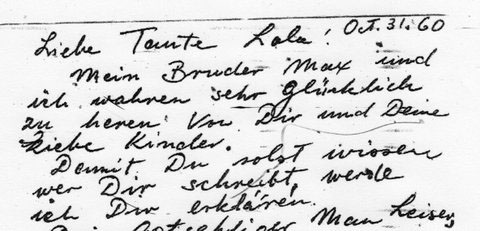 Oct. 31. 60
Liebe Tante Lola!
Mein Bruder Max und
ich wahren sehr Glücklich
zu heren Von Dir und Deine
Liebe Kinder.
Damit Du solst wissen
wer Dir schreibt, werde
ich Dir erklären.
Man heiser